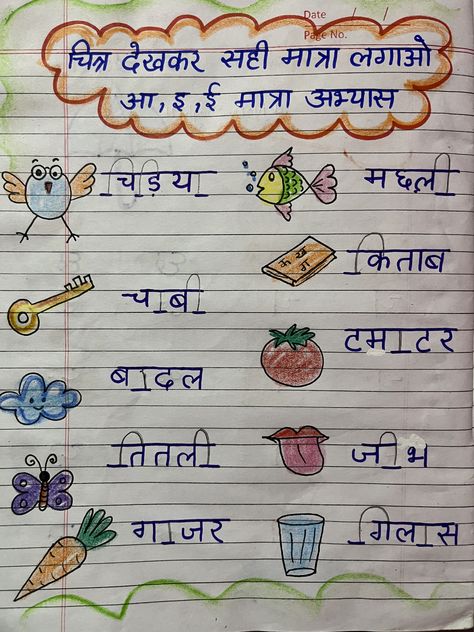 Date / /
Page No.
चित्र देखकर सही मात्रा लगाओ
आ, इ, ई मात्रा अभ्यास
चिड़िया
मछली
किताब
क ख
ग
चाबी
टमाटर
बादल
तितली
जीभ
गाजर
गिलास